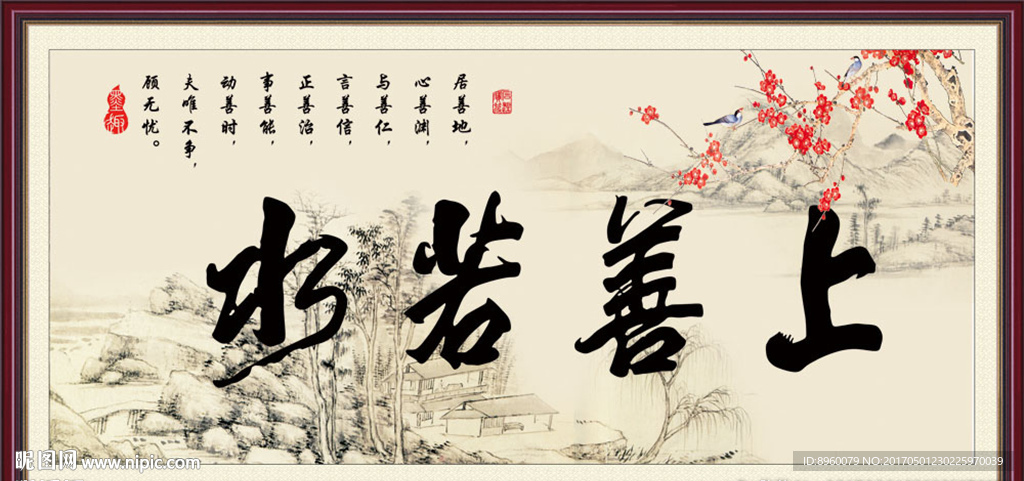 上善若水
居善地，
心善渊，
与善仁，
言善信，
正善治，
事善能，
动善时，
夫唯不争，
顾无忧。
昵图网 www.nipic.com
ID:8960079 NO:20170501230225970039